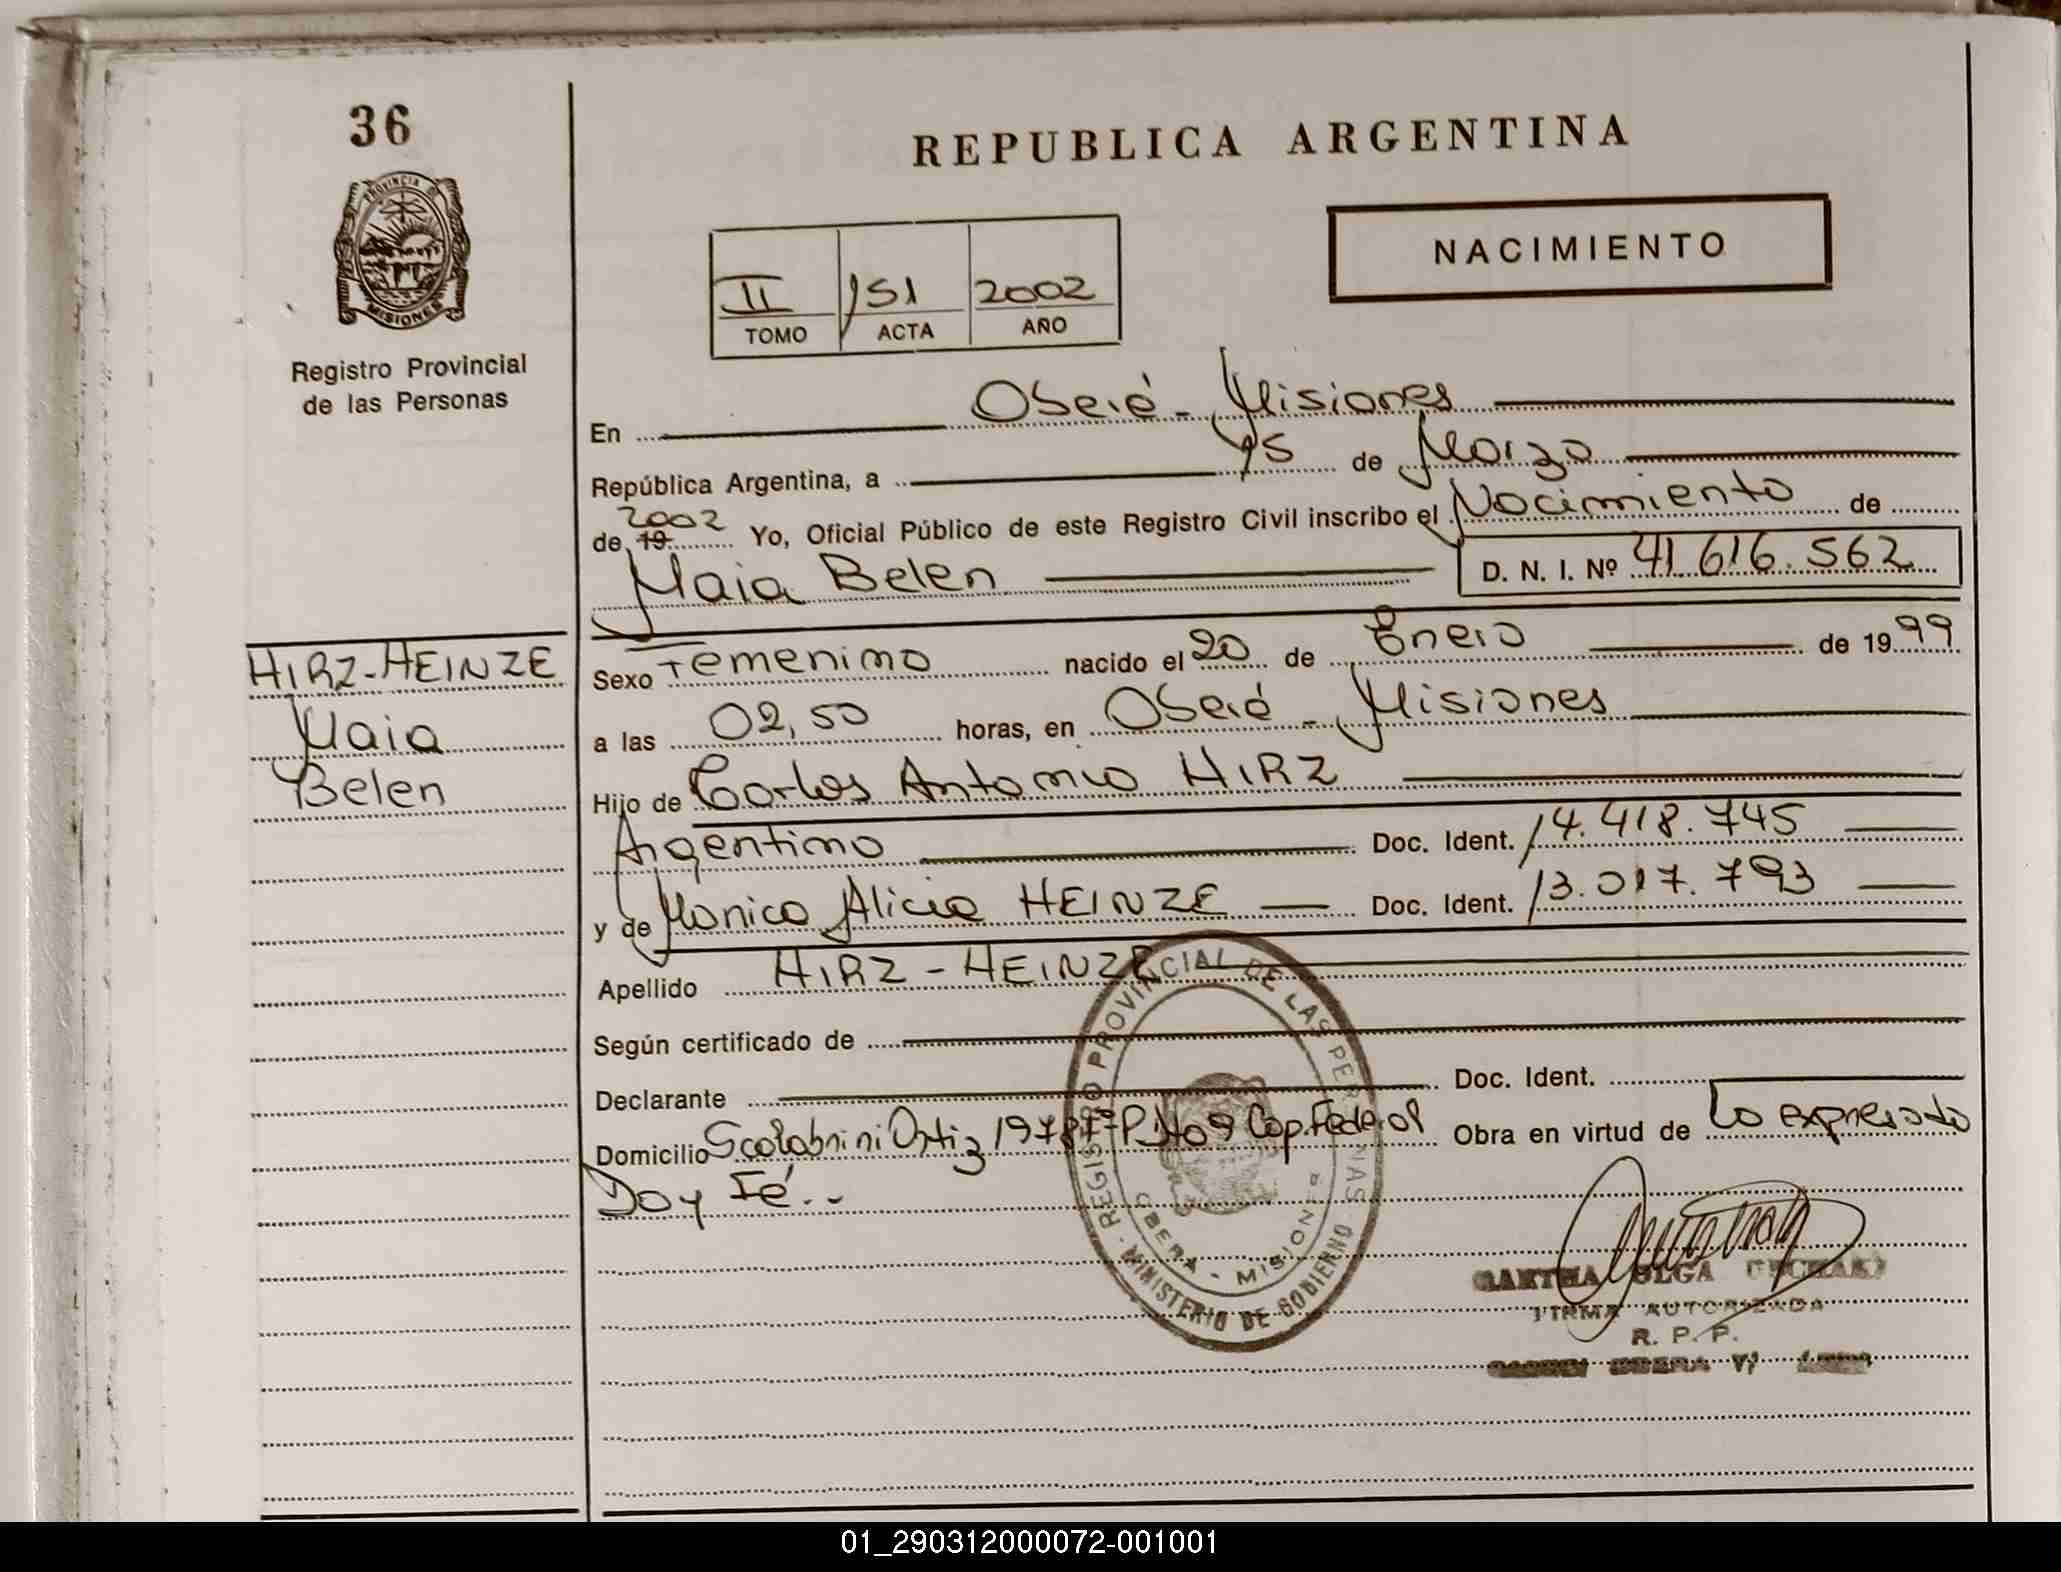 36
PROVINCIA DE
MISIONES
Registro Provincial
de las Personas
REPUBLICA ARGENTINA
NACIMIENTO
II 151 2002
TOMO ACTA AÑO
En Oberá - Misiones
República Argentina, a 15 de Marzo
2002
de 19 Yo, Oficial Público de este Registro Civil inscribo el Nacimiento de
Maia Belen D. N. I. Nº 41.616.562
HIRZ-HEINZE
Maia
Belen
Sexo Femenino nacido el 20 de Enero de 1999
a las 02,50 horas, en Oberá - Misiones
Hijo de Carlos Antonio HIRZ
Argentino Doc. Ident. 14.418.745
y de Monica Alicia HEINZE Doc. Ident. 13.017.793
Apellido HIRZ - HEINZE
Según certificado de
Declarante Doc. Ident.
Domicilio Scalabrini Ortiz Cap. Federal Obra en virtud de lo expresado
Doy Fé.-
REGISTRO PROVINCIAL DE LAS PERSONAS
OBERA - MISIONES
MINISTERIO DE GOBIERNO
OLGA
FIRMA AUTORIZADA
R. P. P.
OBERA
01_290312000072-001001